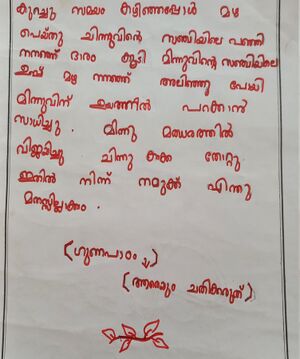 കുറച്ചു സമയം കഴിഞ്ഞപ്പോൾ മഴ
പെയ്തു ചിന്നുവിന്റെ സഞ്ചിയിലെ പഞ്ഞി
നനഞ്ഞ് ഭാരം കൂടി മിന്നുവിന്റെ സഞ്ചിയിലെ
ഉപ്പ് മഴ നനഞ്ഞ് അലിഞ്ഞു പോയി
മിന്നുവിന് ഉയരത്തിൽ പറക്കാൻ
സാധിച്ചു . മിന്നു മത്സരത്തിൽ
വിജയിച്ചു ചിന്നു കാക്ക തോറ്റു
ഇതിൽ നിന്ന് നമുക്ക് എന്തു
മനസ്സിലാക്കാം .
(ഗുണപാഠം
(ആരെയും ചതിക്കരുത്)